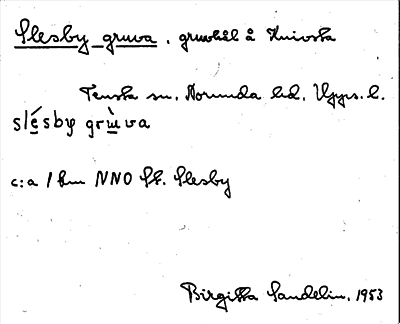 Slesby gruva, gruvhål å Knivsta
Tensta sn, Norunda hd, Upps. l.
slésby grùva
c:a 1 km NNO St. Slesby
Birgitta Sandelin, 1953